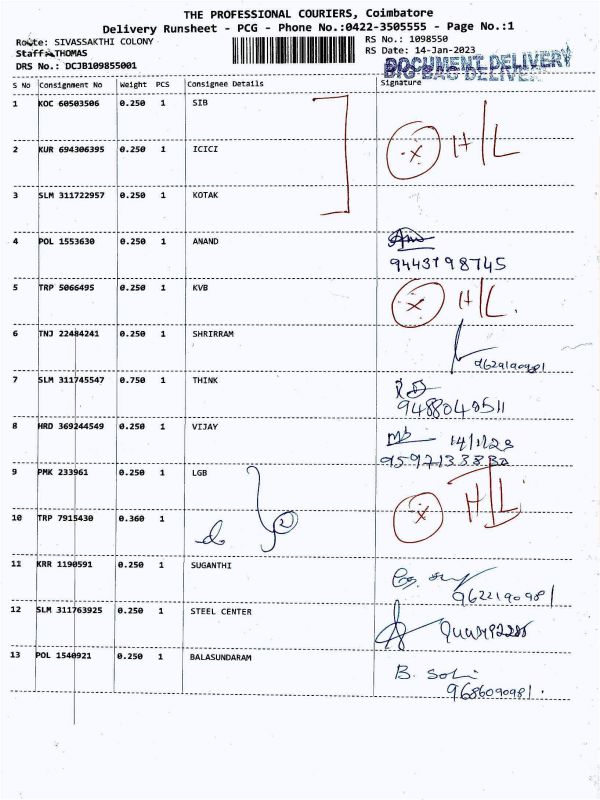 THE PROFESSIONAL COURIERS, Coimbatore
Delivery Runsheet - PCG - Phone No.:0422-3505555 - Page No.:1
Route: SIVASSAKTHI COLONY
RS No.: 1098550
Staff: THOMAS
RS Date: 14-Jan-2023
DRS No.: DCJB109855001
DOCUMENT DELIVERY
BIG BAG DELIVERY
S No Consignment No Weight PCS Consignee Details Signature
1 KOC 60503506 0.250 1 SIB
2 KUR 694306395 0.250 1 ICICI H/L
3 SLM 311722957 0.250 1 KOTAK
4 POL 1553630 0.250 1 ANAND
9443798745
5 TRP 5066495 0.250 1 KVB H/L
6 TNJ 22484241 0.250 1 SHRIRRAM
9629190981
7 SLM 311745547 0.750 1 THINK
9488048511
8 HRD 369244549 0.250 1 VIJAY 14/1/23
9 PMK 233961 0.250 1 LGB H/L
10 TRP 7915430 0.360 1 2
11 KRR 1190591 0.250 1 SUGANTHI
9622190981
12 SLM 311763925 0.250 1 STEEL CENTER
13 POL 1540921 0.250 1 BALASUNDARAM B.
9686090981.